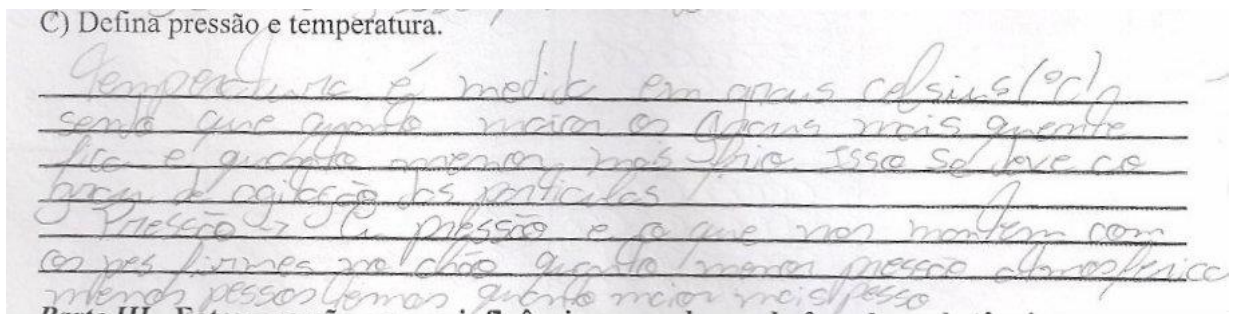 C) Defina pressão e temperatura.
Temperatura é medida em graus celsius (°C),
sendo que quanto maior os graus mais quente
fica e quanto menor, mas frio. Isso se deve ao
grau de agitação das partículas
Pressão → A pressão e o que nos mantém com
os pes firmes no chão quanto menor pressão atmosférica
menos pessos temos quanto maior mais pesso
Parte III